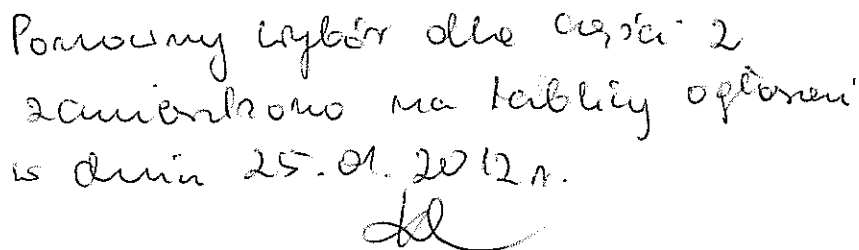 Ponowny wybór dla części 2
zamieszkono na tablicy ogłoszeń
w dniu 25.01.2012 r.